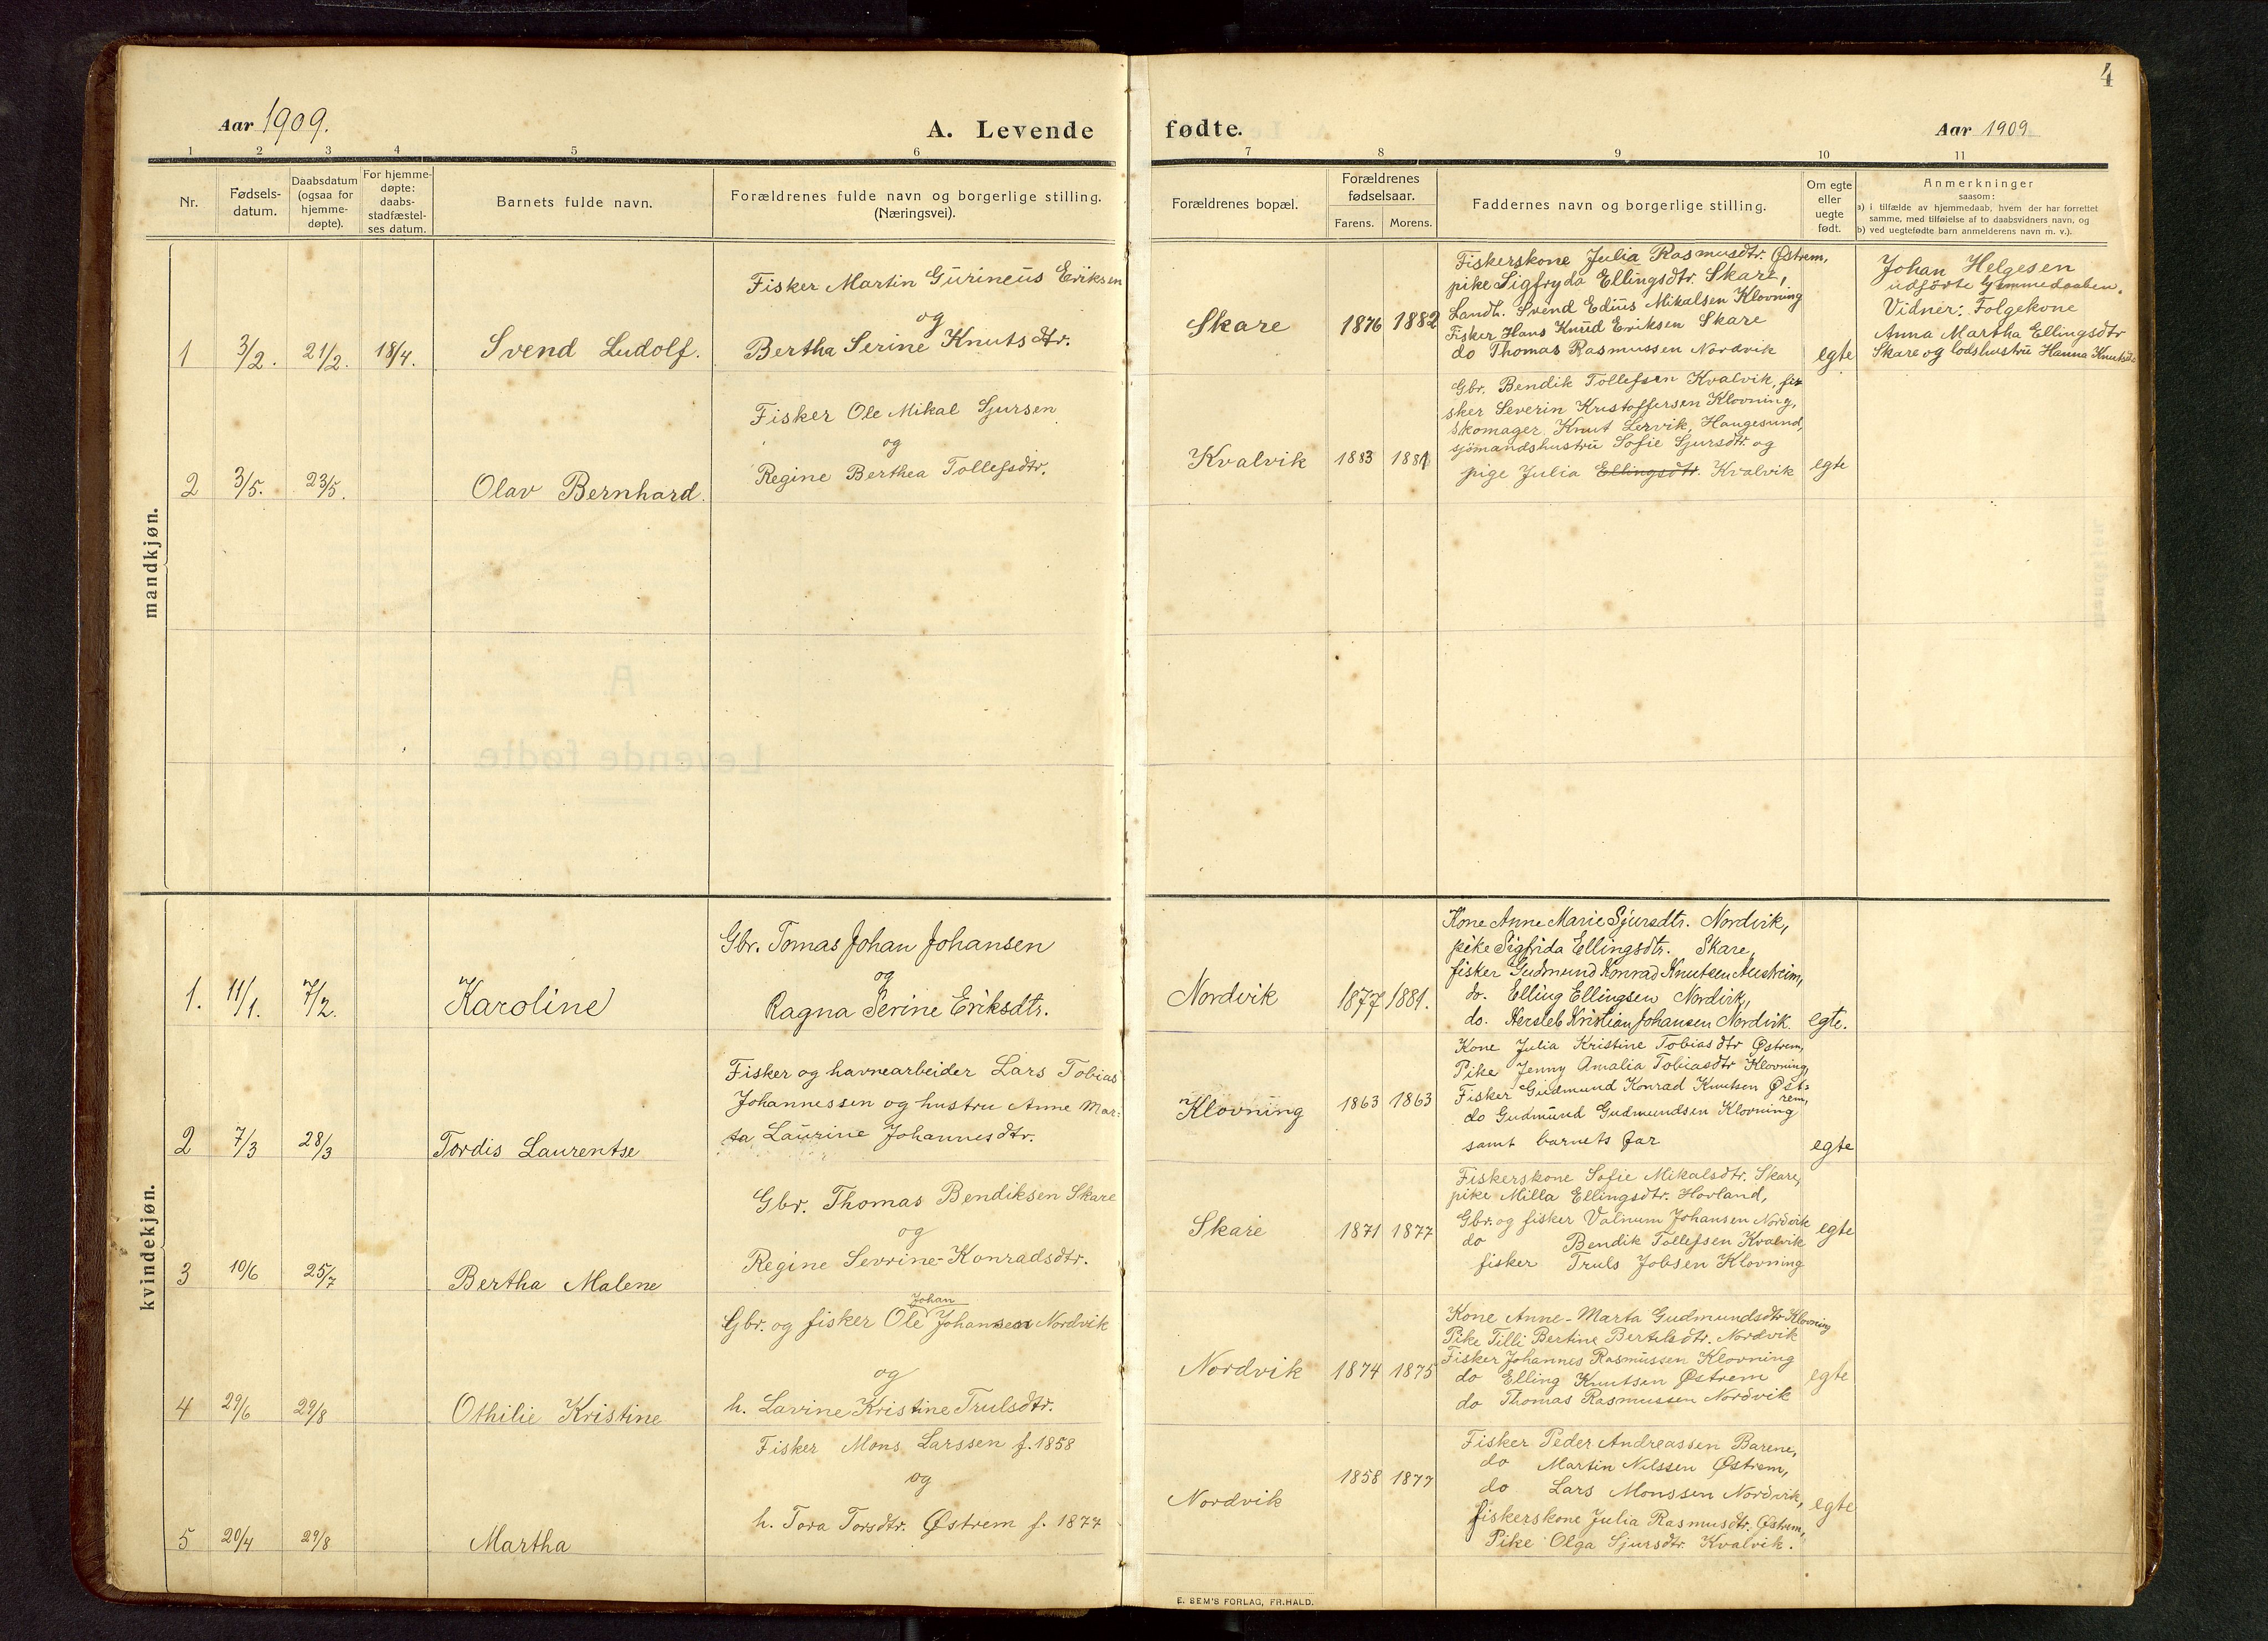 4
Aar 1909.
A. Levende
fødte.
Aar 1909
1 2 3 4 5 6 7 8 9 10 11
Nr.
Fødsels-
datum.
Daabsdatum
(ogsaa for
hjemme-
døpte).
For hjemme-
døpte:
daabs-
stadfæstel-
ses datum.
Barnets fulde navn.
Forældrenes fulde navn og borgerlige stilling.
(Næringsvei).
Forældrenes bopæl.
Forældrenes
fødselsaar.
Farens. Morens.
Faddernes navn og borgerlige stilling.
Om egte
eller
uegte
født.
Anmerkninger
saasom:
a) i tilfælde av hjemmedaab, hvem der har forrettet
samme, med tilføielse af to daabsvidners navn, og
b) ved uegtefødte barn anmelderens navn m. v.).
mandkjøn.
1 3/2. 21/2. 18/4. Svend Ludolf.
Fisker Martin Gurineus Eriksen
og
Bertha Serine Knutsdtr.
Skare 1876 1882
Fiskerskone Julia Rasmusdtr. Østrem,
pike Sigfryda Ellingsdtr. Skare,
Landh. Svend Edius Mikalsen Klovning
Fisker Hans Knud Eriksen Skare
do Thomas Rasmussen Nordvik
egte
Johan Helgesen
udførte hjemmedaaben.
Vidner: Folgekone
Anna Martha Ellingsdtr
Skare og lodshustru Hanna
2 3/5. 23/5. Olav Bernhard.
Fisker Ole Mikal Sjursen
og
Regine Berthea Tollefsdtr.
Kvalvik 1883 1881
Gbr. Bendik Tollefsen Kvalvik, fi-
sker Severin Kristoffersen Klovning,
skomager Knut Lervik, Haugesund,
sjømandshustru Sofie Sjursdtr. og
pige Julia Ellingsdtr. Kvalvik
egte
kvindekjøn.
1. 11/1. 7/2. Karoline
Gbr. Tomas Johan Johansen
og
Ragna Serine Eriksdtr.
Nordvik 1877 1881.
Kone Anne Marie Sjursdtr. Nordvik,
pike Sigfrida Ellingsdtr. Skare,
fisker Gudmund Konrad Knutsen Austreim,
do. Elling Ellingsen Nordvik,
do. Hersleb Kristian Johansen Nordvik.
egte.
2 7/3 28/3 Tordis Laurentse
Fisker og havnearbeider Lars Tobias
Johannessen og hustru Anne Mar-
ta Laurine Johannesdtr.
Klovning 1863 1863
Kone Julia Kristine Tobiasdtr Østrem,
Pike Jenny Amalia Tobiasdtr Klovning,
Fisker Gudmund Konrad Knutsen Øst-
rem,
do Gudmund Gudmundsen Klovning
samt barnets far
egte
3 10/6 25/7 Bertha Malene
Gbr. Thomas Bendiksen Skare
og
Regine Sevrine Konradsdtr.
Skare 1871 1877
Fiskerskone Sofie Mikalsdtr. Skare,
pike Milla Ellingsdtr. Hovland,
Gbr. og fisker Valnum Johansen Nordvik
do Bendik Tollefsen Kvalvik
fisker Truls Jobsen Klovning
egte
4 29/6 29/8 Othilie Kristine
Johan
Gbr. og fisker Ole Johansen Nordvik
og
h. Lavine Kristine Trulsdtr.
Nordvik 1874 1875
Kone Anne-Marta Gudmundsdtr Klovning
Pike Tilli Bertine Bertelsdtr. Nordvik
Fisker Johannes Rasmussen Klovning
do Elling Knutsen Østrem
do Thomas Rasmussen Nordvik
egte
5 20/4 29/8 Martha
Fisker Mons Larssen f. 1858
og
h. Tora Torsdtr. Østrem f. 1877
Nordvik 1858 1877
Fisker Peder Andreassen Barene,
do Martin Nilssen Østrem,
do Lars Monssen Nordvik,
fiskerskone Julia Rasmusdtr. Østrem,
Pike Olga Sjursdtr. Kvalvik.
egte
E. SEM'S FORLAG, FR.HALD.